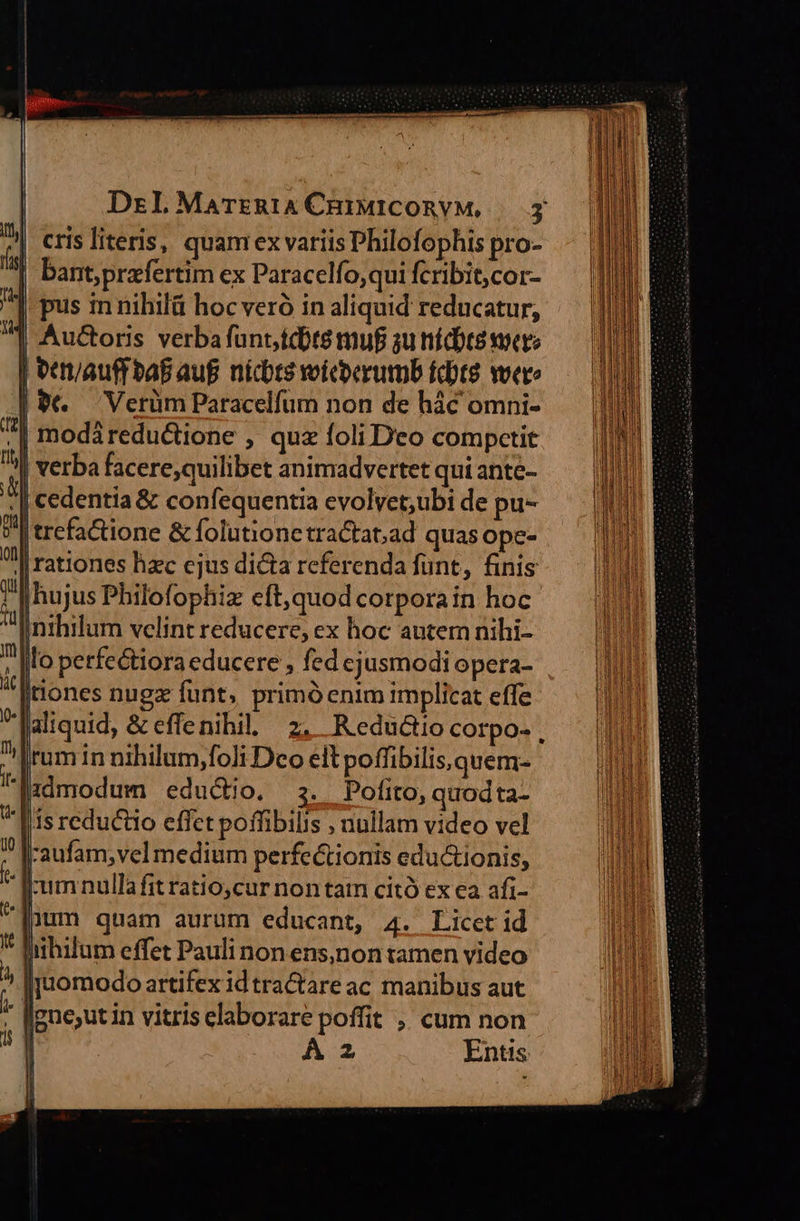 DE I. MATERIA CHIMICORVM, 3
cris literis, quam ex variis Philoſophis pro-
bant, præſertim ex Paracelſo, qui ſcribit, cor-
pus in nihilū hoc verò in aliquid reducatur,
Auctoris verba ſunt, ichts muß zu nichts wer-
den/auff daß auß nichts wiederumb ichts wer-
de. Verùm Paracelſum non de hác omni-
modâ reductione, quæ ſoli Deo competit
verba facere, quilibet animadvertet qui anté-
cedentia & conſequentia evolvet, ubi de pu-
trefactione & ſolutione tractat, ad quas ope-
rationes hæc ejus dicta referenda ſunt, finis
hujus Philoſophiæ eſt, quod corpora in hoc
nihilum velint reducere, ex hoc autem nihi-
lo perfectiora educere, ſed ejusmodi opera-
tiones nugæ ſunt, primò enim implicat eſſe
aliquid, & eſſe nihil. 2. Reductio corpo-
rum in nihilum, ſoli Deo eſt poſſibilis, quem-
admodum eductio. 3. Poſito, quod ta-
is reductio eſſet poſſibilis, nullam video vel
cauſam, vel medium perfectionis eductionis,
cum nulla ſit ratio, cur non tam citò ex ea aſi-
num quam aurum educant, 4. Licet id
nihilum eſſet Pauli non ens, non tamen video
quomodo artifex id tractare ac manibus aut
igne, ut in vitris elaborare poſſit, cum non
A 2 Entis